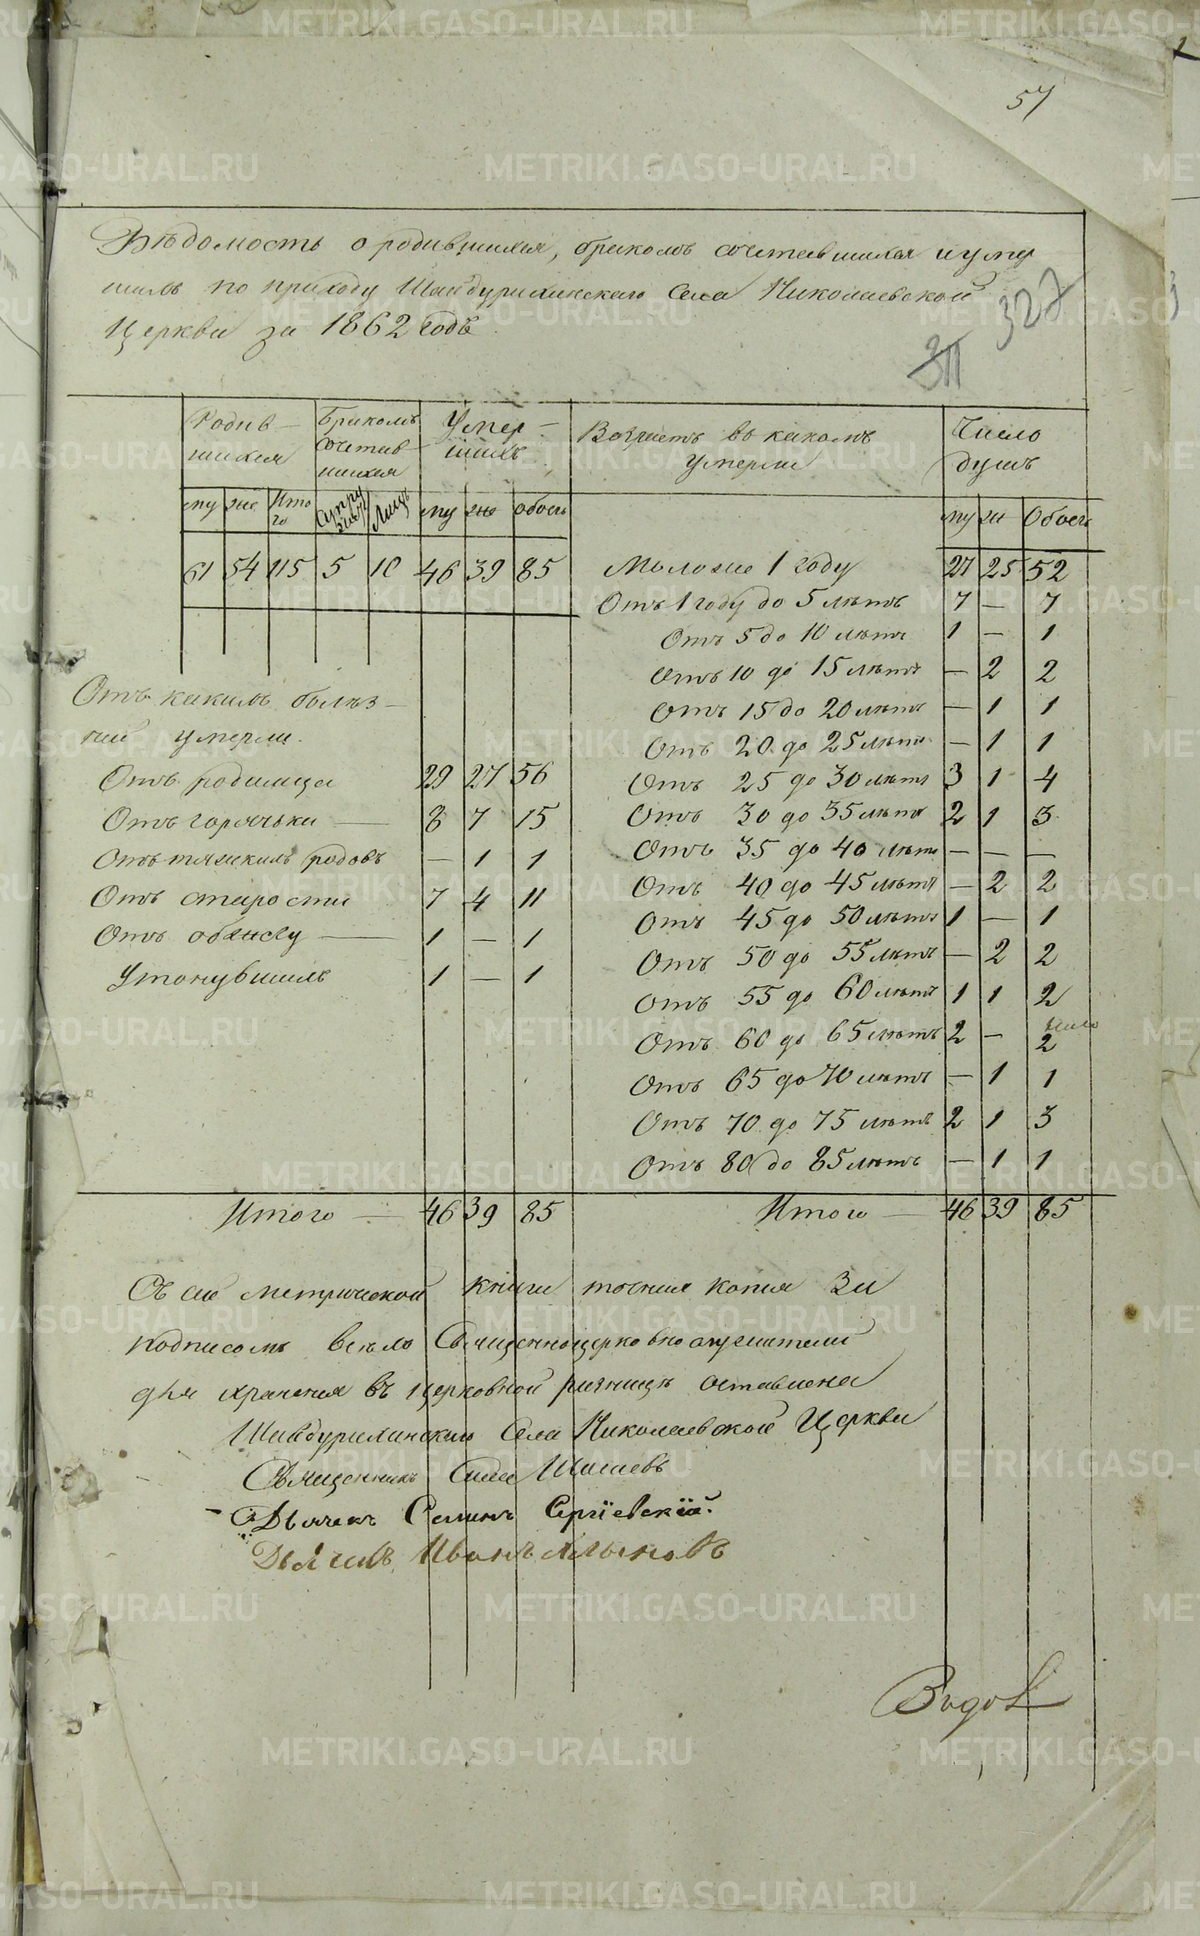 57
Вѣдомость о родившихся, бракомъ сочетавшихся и умер
шихъ по приходу Шайдурихинскаго Села Николаевской
Церкви за 1862 годъ
327
311
Родив-
шихся
Бракомъ
сочетав-
шихся
Умер-
шихъ
Возрастъ въ какомъ
умерли
Число
душъ
му же Ито
го
Супру
Лицъ
му же обоего
му же Обоего
61 54 115 5 10 46 39 85
Моложе 1 году 27 25 52
Отъ 1 году до 5 лѣтъ 7 — 7
Отъ 5 до 10 лѣтъ 1 — 1
Отъ 10 до 15 лѣтъ — 2 2
Отъ 15 до 20 лѣтъ — 1 1
Отъ 20 до 25 лѣтъ — 1 1
Отъ 25 до 30 лѣтъ 3 1 4
Отъ 30 до 35 лѣтъ 2 1 3
Отъ 35 до 40 лѣтъ — — —
Отъ 40 до 45 лѣтъ — 2 2
Отъ 45 до 50 лѣтъ 1 — 1
Отъ 50 до 55 лѣтъ — 2 2
Отъ 55 до 60 лѣтъ 1 1 2
Отъ 60 до 65 лѣтъ 2 — 2
Отъ 65 до 70 лѣтъ — 1 1
Отъ 70 до 75 лѣтъ 2 1 3
Отъ 80 до 85 лѣтъ — 1 1
Отъ какихъ болѣз-
ней умерли.
Отъ родимца 29 27 56
Отъ горячьки — 8 7 15
Отъ тяжкихъ родовъ — 1 1
Отъ старости 7 4 11
Отъ — 1 — 1
Утонувшихъ 1 — 1
Итого — 46 39 85
Итого — 46 39 85
Съ сей метрической книги точная копия За
подписомъ всѣхъ Священноцерковнослужителей
для хранения въ церковной ризницѣ оставлена
Шайдурихинскаго Села Николаевской Церкви
Священникъ
Дьячекъ Сергіевскій.
Дьячекъ Иванъ
METRIKI.GASO-URAL.RU